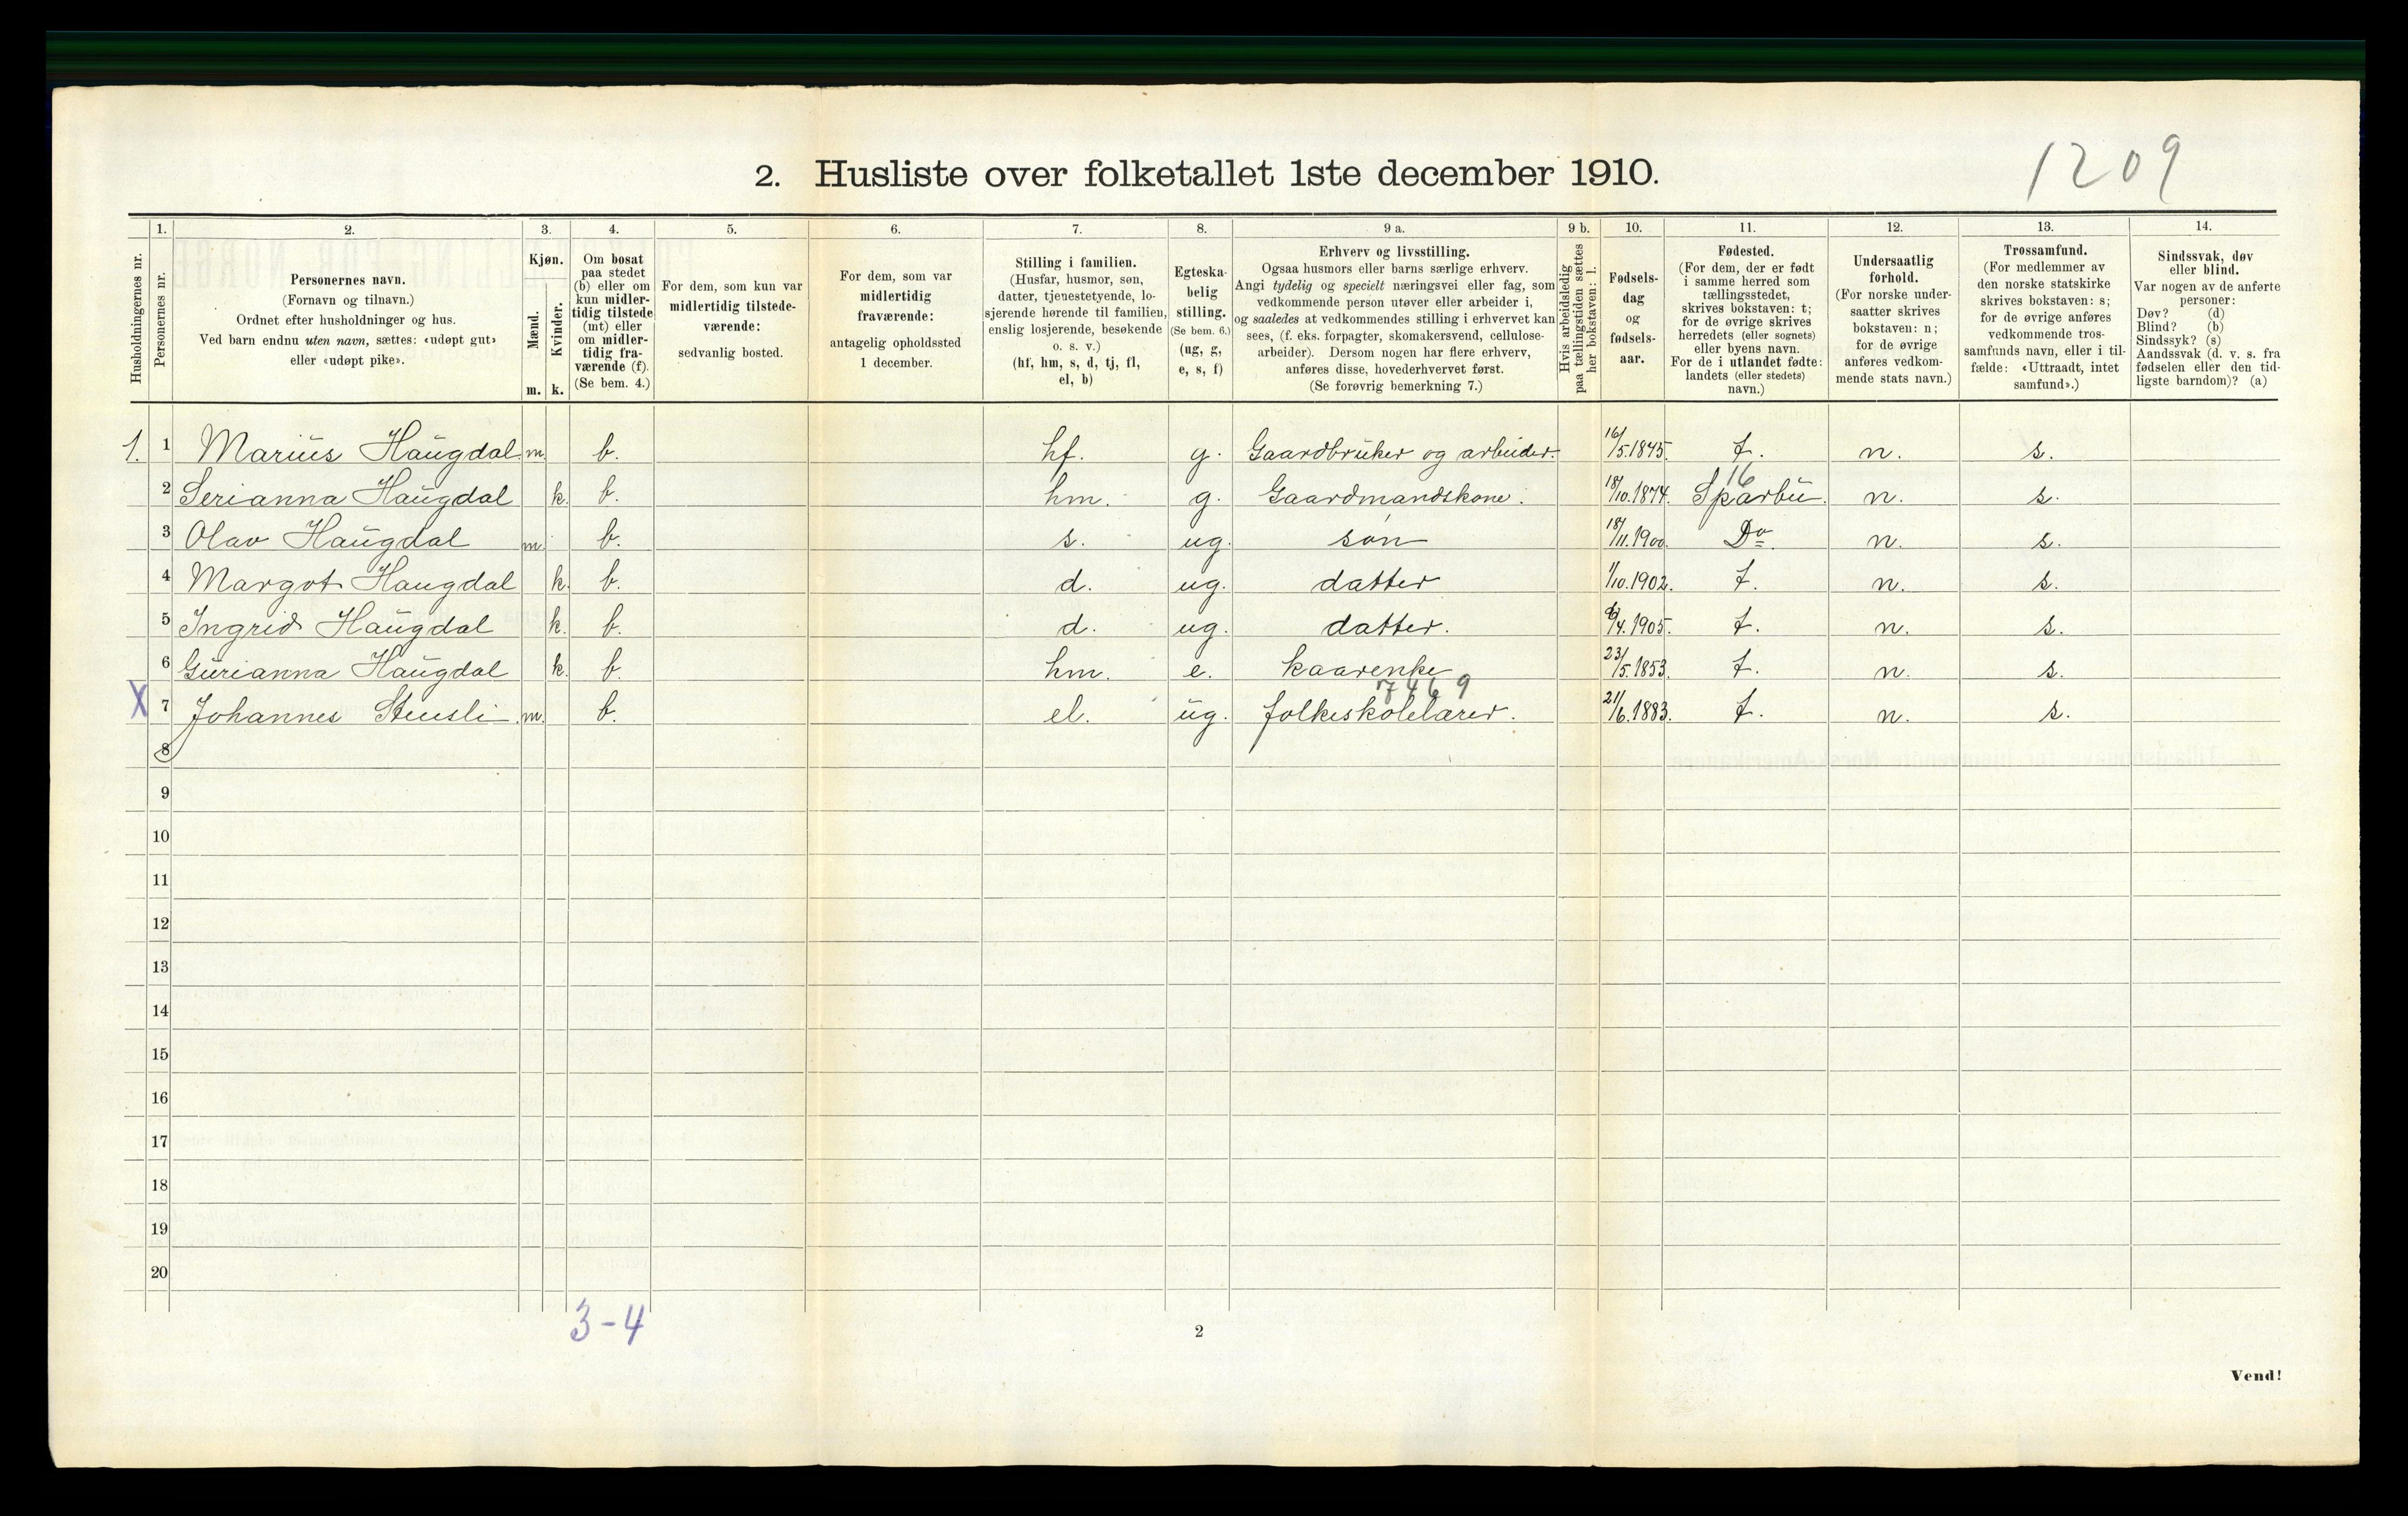 1209
2. Husliste over folketallet 1ste december 1910.
Husholdningernes nr.
1. Personernes nr.
2. Personernes navn.
(Fornavn og tilnavn.)
Ordnet efter husholdninger og hus.
Ved barn endnu uten navn, sættes: «udøpt gut»
eller «udøpt pike».
3. Kjøn.
Mænd. m.
Kvinder. k.
4. Om bosat
paa stedet
(b) eller om
kun midler-
tidig tilstede
(mt) eller
om midler-
tidig fra-
værende (f).
(Se bem. 4.)
5. For dem, som kun var
midlertidig tilstede-
værende:
sedvanlig bosted.
6. For dem, som var
midlertidig
fraværende:
antagelig opholdssted
1 december.
7. Stilling i familien.
(Husfar, husmor, søn,
datter, tjenestetyende, lo-
sjerende hørende til familien,
enslig losjerende, besøkende
o. s. v.)
(hf, hm, s, d, tj, fl,
el, b)
8. Egteska-
belig
stilling.
(Se bem. 6.)
(ug, g,
e, s, f)
9 a. Erhverv og livsstilling.
Ogsaa husmors eller barns særlige erhverv.
Angi tydelig og specielt næringsvei eller fag, som
vedkommende person utøver eller arbeider i,
og saaledes at vedkommendes stilling i erhvervet kan
sees, (f. eks. forpagter, skomakersvend, cellulose-
arbeider). Dersom nogen har flere erhverv,
anføres disse, hovederhvervet først.
(Se forøvrig bemerkning 7.)
9 b. Hvis arbeidsledig
paa tællingstiden sættes
her bokstaven: l.
10. Fødsels-
dag
og
fødsels-
aar.
11. Fødested.
(For dem, der er født
i samme herred som
tællingsstedet,
skrives bokstaven: t;
for de øvrige skrives
herredets (eller sognets)
eller byens navn.
For de i utlandet fødte:
landets (eller stedets)
navn.)
12. Undersaatlig
forhold.
(For norske under-
saatter skrives
bokstaven: n;
for de øvrige
anføres vedkom-
mende stats navn.)
13. Trossamfund.
(For medlemmer av
den norske statskirke
skrives bokstaven: s;
for de øvrige anføres
vedkommende tros-
samfunds navn, eller i til-
fælde: «Uttraadt, intet
samfund».)
14. Sindssvak, døv
eller blind.
Var nogen av de anførte
personer:
Døv? (d)
Blind? (b)
Sindssyk? (s)
Aandssvak (d. v. s. fra
fødselen eller den tid-
ligste barndom)? (a)
1. 1 Marius Haugdal m. b. hf. g. Gaardbruker og arbeider. 16/5.1875. t. n. s.
16
2 Serianna Haugdal k. b. hm. g. Gaardmandskone. 18/10.1874. Sparbu. n. s.
3 Olav Haugdal m. b. s. ug. søn 18/11.1900. Do. n. s.
4 Margot Haugdal k. b. d. ug. datter 1/10.1902. t. n. s.
5 Ingrid Haugdal k. b. d. ug. datter. /4.1905. t. n. s.
6 Gurianna Haugdal k. b. hm. e. kaarenke 23/5.1853. t. n. s.
7469
X 7 Johannes Stensli m. b. el. ug. folkeskolelærer. 21/6.1883. t. n. s.
8
9
10
11
12
13
14
15
16
17
18
19
20
3-4
2
Vend!